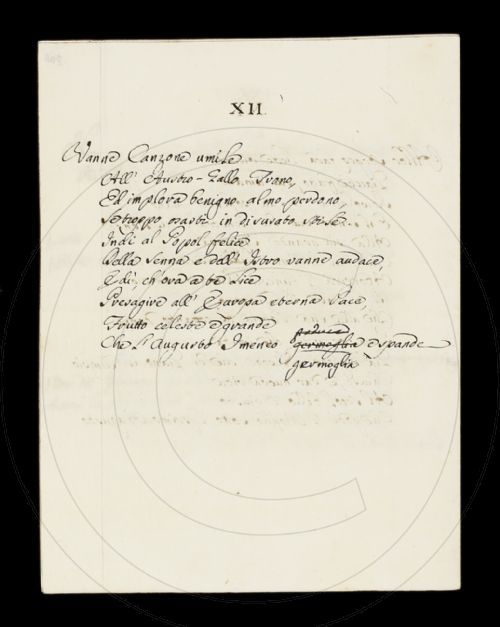 XII
Vanne Canzone umile
All' Austro-Gallo Trono,
Ed implora benigno almo perdono,
Se troppo osasti in disusato stile.
Indi al Popol felice
Della Senna e dall' Istro vanne audace,
E dì, ch'ora a te lice
Presagire all' Europa eterna Pace,
Frutto celeste e grande
Che l'Augusto Imeneo germoglia e spande
germoglia